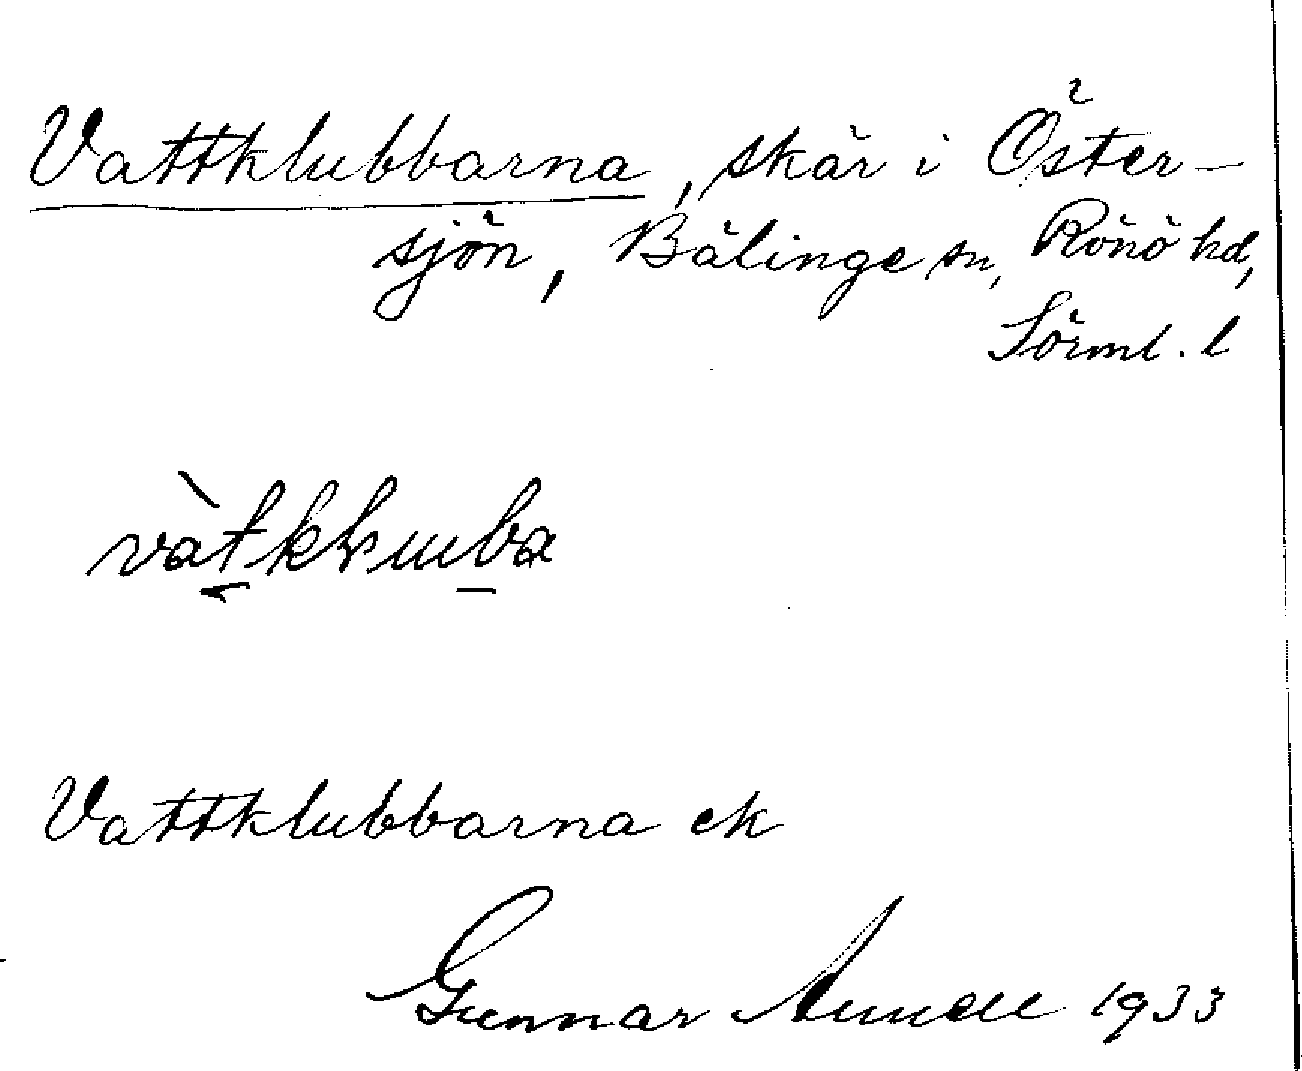 Vattklubbarna, skär i Öster-
sjön, Bälinge sn, Rönö hd,
Sörml. l
Vattklubbarna ek
Gunnar 1933